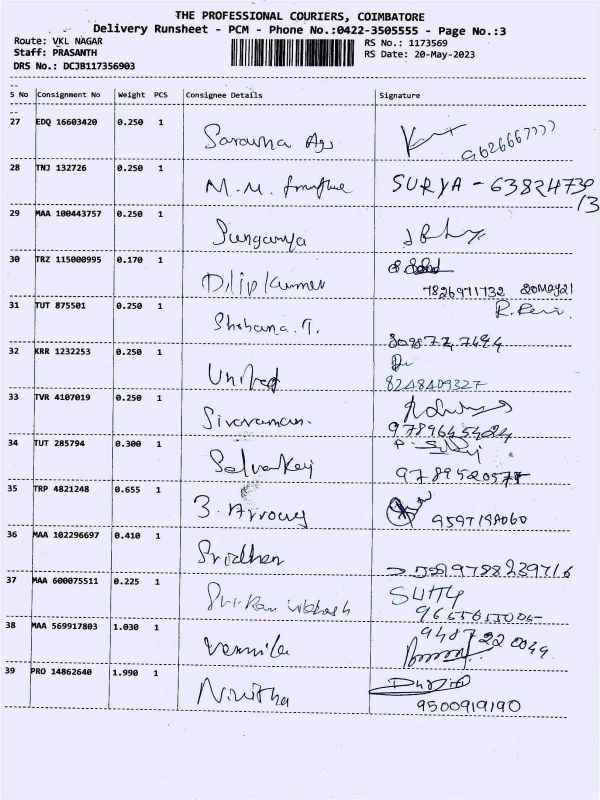 THE PROFESSIONAL COURIERS, COIMBATORE
Delivery Runsheet - PCM - Phone No.:0422-3505555 - Page No.:3
Route: VKL NAGAR
RS No.: 1173569
Staff: PRASANTH
RS Date: 20-May-2023
DRS No.: DCJB117356903
S No Consignment No Weight PCS Consignee Details Signature
27 EDQ 16603420 0.250 1 Saravna Ags
28 TNJ 132726 0.250 1 M.M. SURYA - 63824739
13
29 MAA 100443757 0.250 1
30 TRZ 115000995 0.170 1 Dilip Kumar
7826971732
31 TUT 875501 0.250 1 Shobana. T.
32 KRR 1232253 0.250 1 United
8248409327
33 TVR 4107019 0.250 1 Sivaraman.
9789645424
34 TUT 285794 0.300 1
35 TRP 4821248 0.655 1 3 Arrows
36 MAA 102296697 0.410 1 Sridhar
9788239716
37 MAA 600075511 0.225 1
38 MAA 569917803 1.030 1 Vennila
9487220049
39 PRO 14862640 1.990 1 Nivitha
9500919190